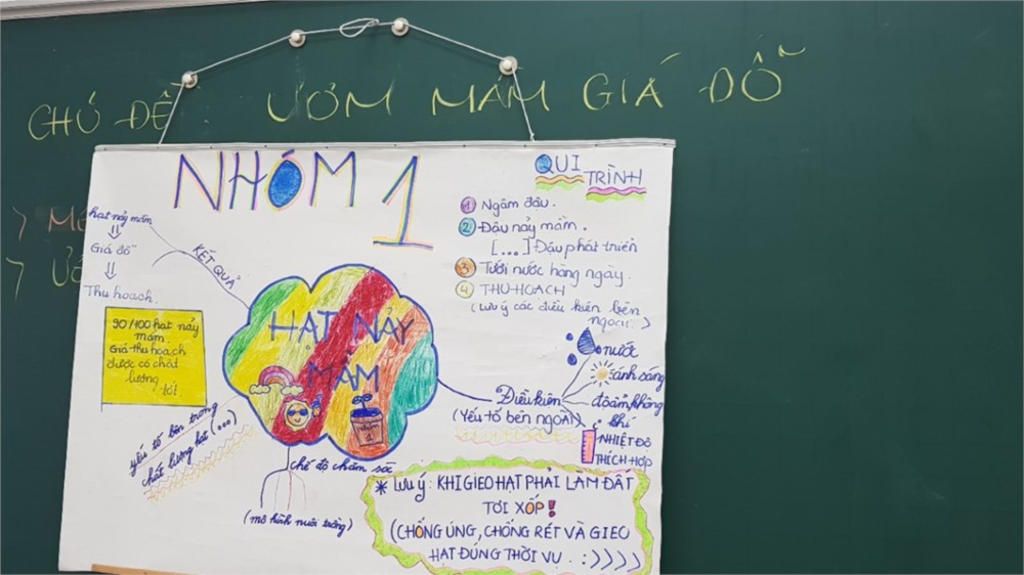 CHỦ ĐỀ: ƯƠM MẦM GIÁ ĐỖ
NHÓM 1
hạt nảy mầm
Giá đỗ
Thu hoạch.
KẾT QUẢ
90/100 hạt nảy
mầm.
Giá thu hoạch
được có chất
lượng
tốt.
yếu tố bên trong
chất lượng hạt (...)
HẠT NẢY
MẦM
NHÓM
1
chế độ chăm sóc
(mô hình nuôi trồng)
QUI TRÌNH
1 Ngâm đậu.
2 Đậu nảy mầm.
[...] Đậu phát triển
3 Tưới nước hàng ngày.
4 THU HOẠCH
(Lưu ý các điều kiện bên
ngoài.)
Điều kiện
(Yếu tố bên ngoài)
nước
ánh sáng
độ ẩm, không
khí
NHIỆT ĐỘ
THÍCH HỢP
* LƯU Ý: KHI GIEO HẠT PHẢI LÀM ĐẤT
TƠI XỐP!
(CHỐNG ÚNG, CHỐNG RÉT VÀ GIEO
HẠT ĐÚNG THỜI VỤ. :))))